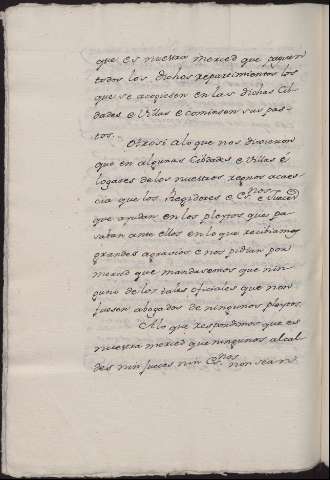 que es nuestra merced que paguen
todos los dichos repartimientos los
que se acogiesen en las dichas Cib
dades e Villas e comiesen sus pas
tos.
Otrosi a lo que nos dixieron
que en algunas Cibdades e Villas e
logares de los nuestros regnos acaes
cia que los Regidores e Es.nos e Jueces
que ayudan en los pleytos que pa
saban ante ellos en lo que recibiamos
grandes agravios e nos pidian por
merced que mandasemos que nin
guno de los tales oficiales que non
fuesen abogados de ningunos pleytos.
A lo que respondemos que es
nuestra merced que ningunos alcal
des nin jueces nin Es.nos non sean